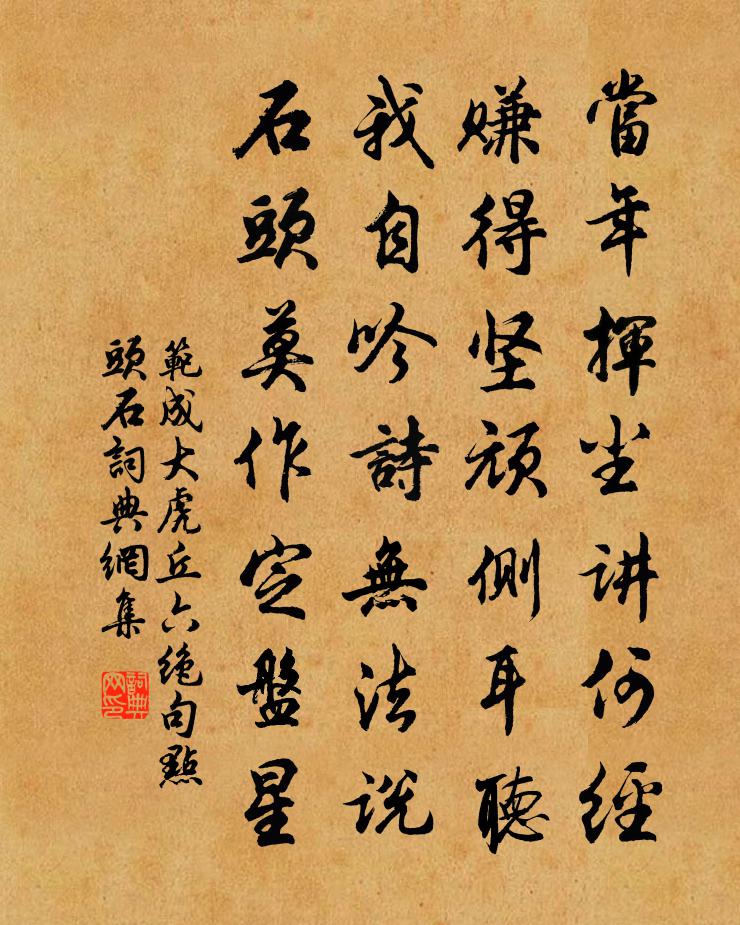 當年揮尘讲何經
赚得坚顽側耳聽
我自吟詩無法説
石頭莫作定盤星
範成大虎丘六绝句點
頭石詞典網集
詞典网印